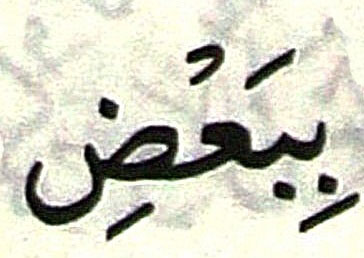 بِبَعْضِ